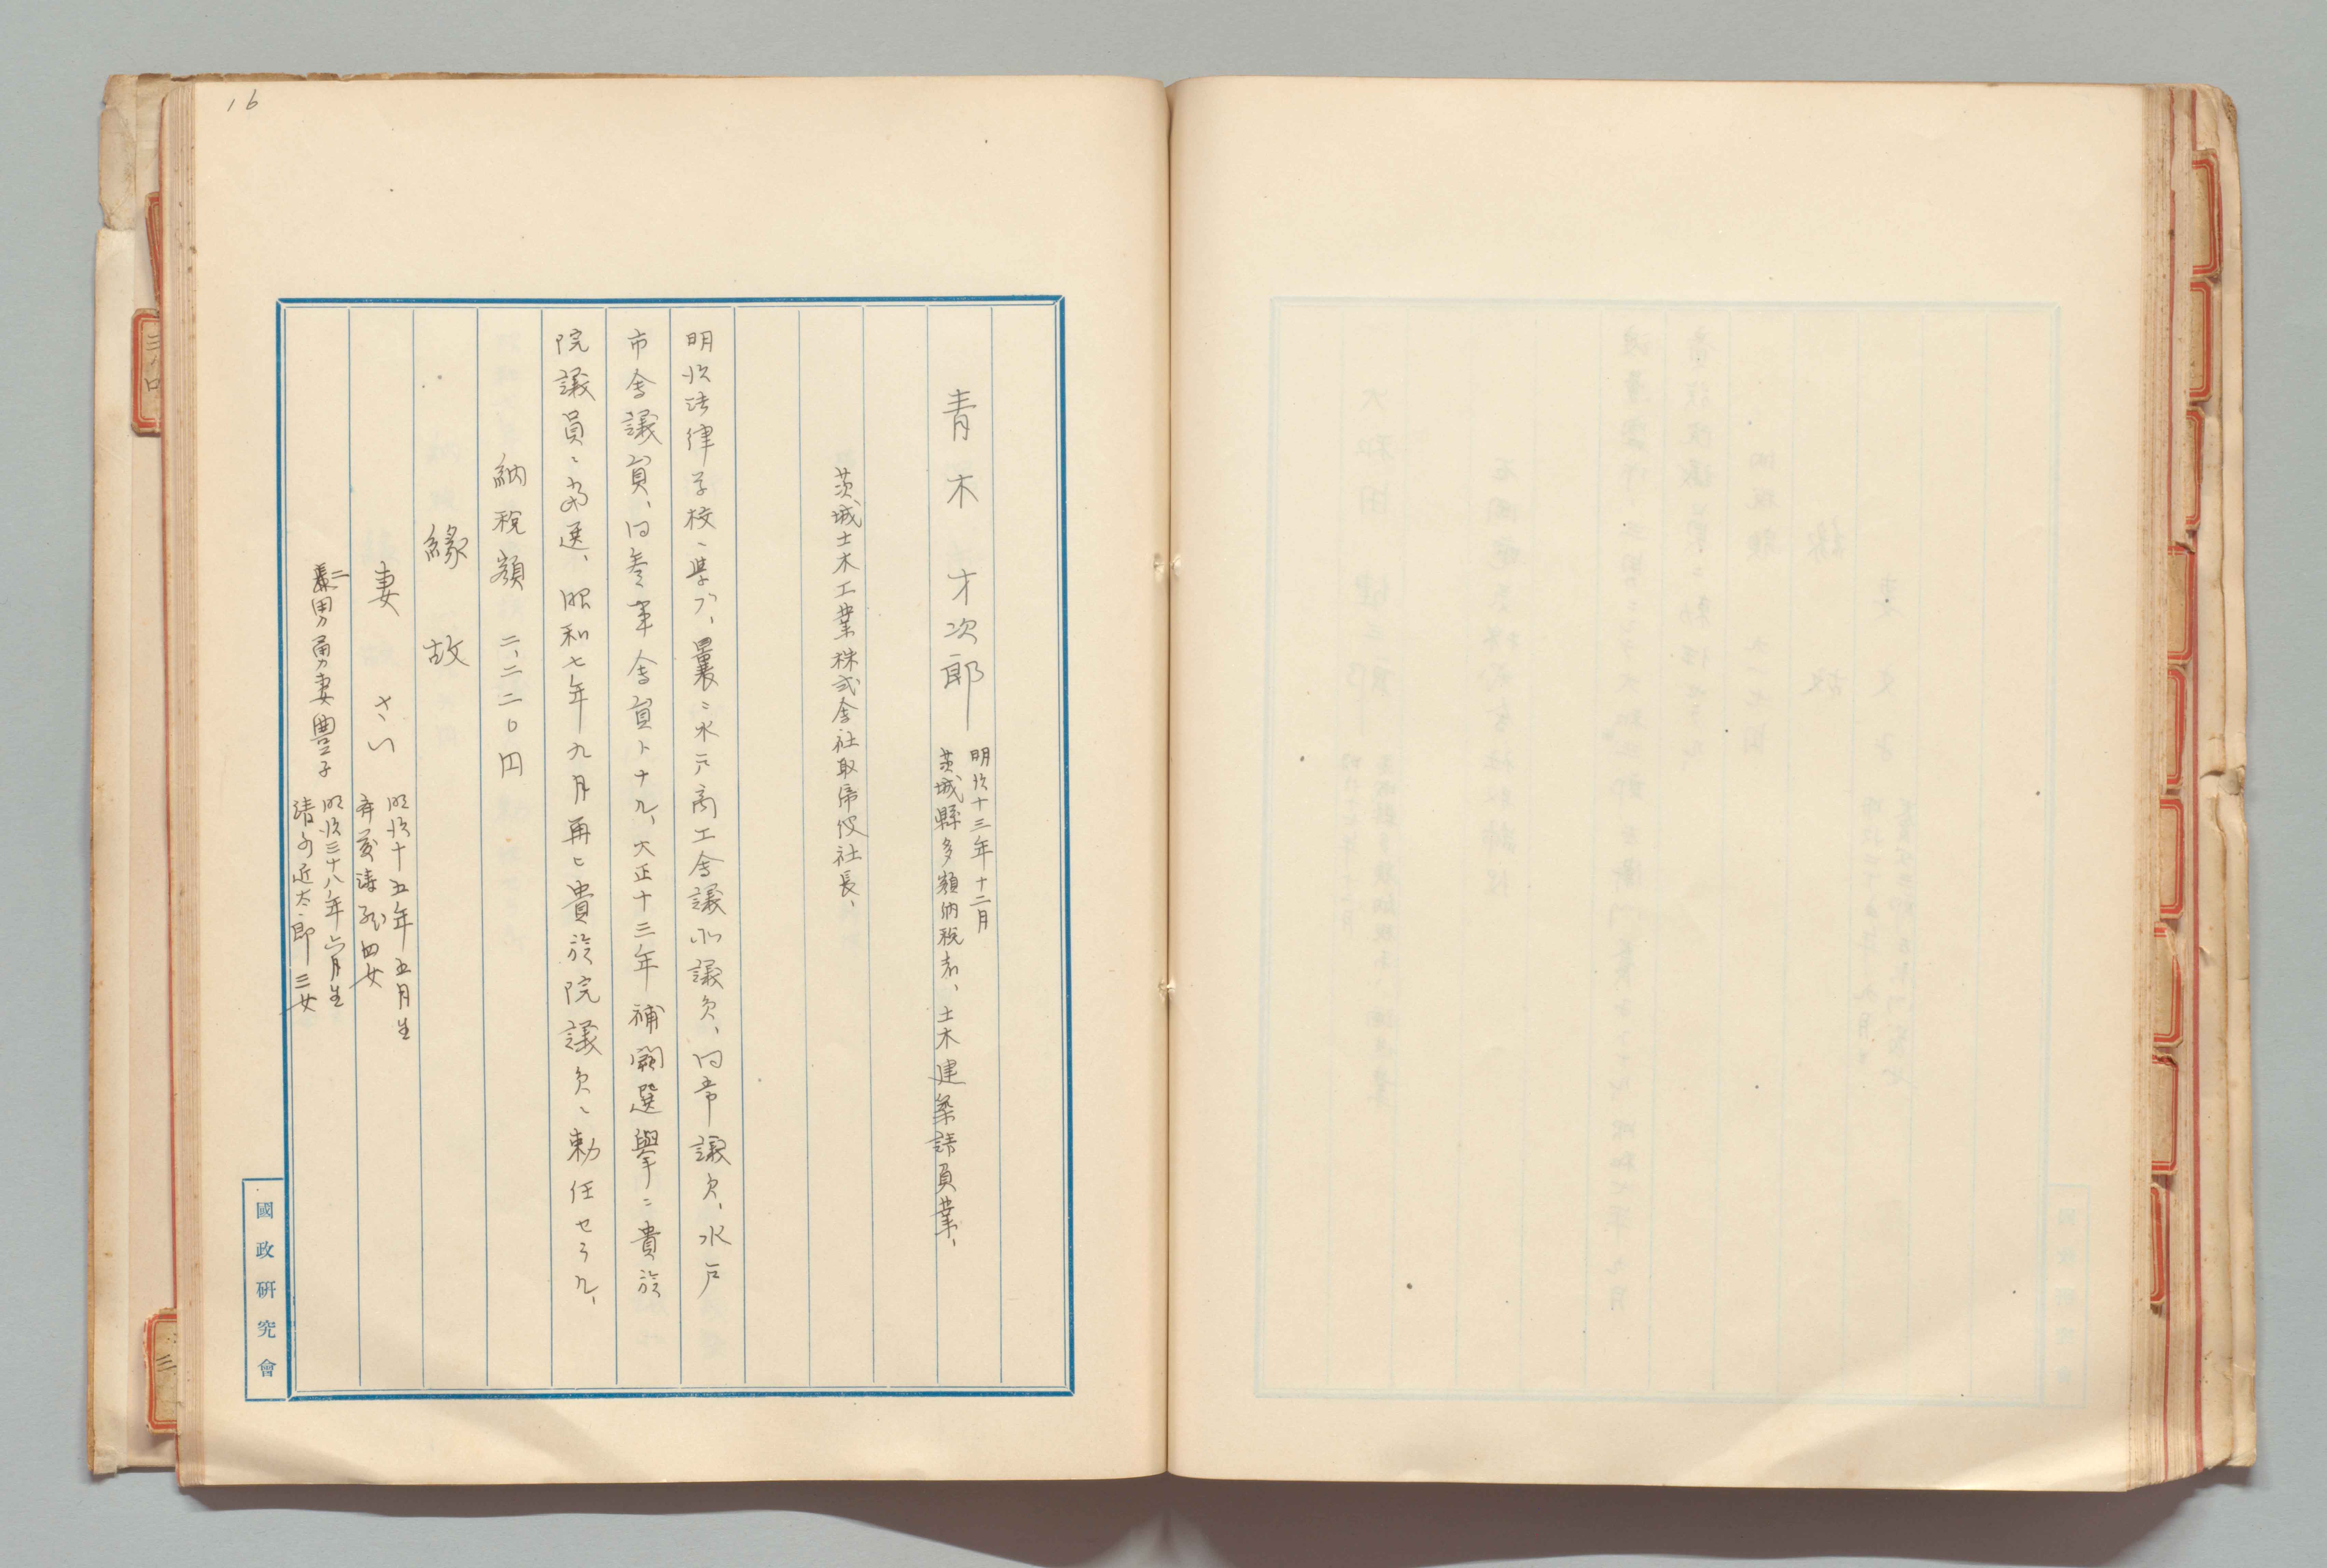 16
青木才次郎
明治十三年十二月
茨城縣多額納税者、土木建築請負業、
茨城土木工業株式会社取締役社長、
明治法律学校ニ学ブ、曩ニ水戸商工会議所議員、同常議員、水戸
市会議員、同参事会員トナル、大正十三年補闕選擧ニ貴族
院議員ニ当選、昭和七年九月再ヒ貴族院議員ニ勅任セラル、
納税額 二、二二〇円
緣故
妻 さい
明治十五年五月生
斉藤 四女
二男勇妻豊子
明治三十八年六月生
清水近太郎三女
國政研究會